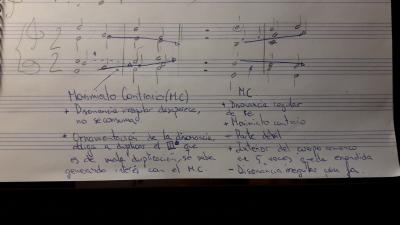 Movimiento Contrario (M.C)
+ Disonancia irregular desaparece,
no se consuma
* Ornamentación de la disonancia,
obliga a duplicar el III° que
es de mala duplicación, se sube
generando interés con el M.C.
M.C.
+ Disonancia regular
de Re.
+ Movimiento contrario
+ Parte débil
+ Exterior del cuerpo
de 5 voces queda
- Disonancia irregular con fa.